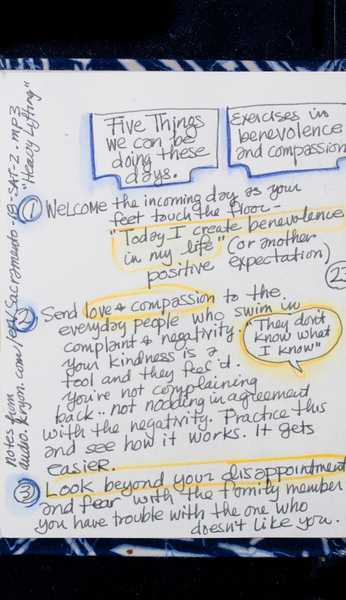 Five Things
we can be
doing these
days.
Exercises in
benevolence
and compassion
① Welcome the incoming day as your
feet touch the floor -
"Today I create benevolence
in my life" (or another
positive expectation)
23
② Send love & compassion to the
everyday people who swim in
complaint & negativity.
your kindness is a
tool and they feel it.
you're not complaining
back.. not nodding in agreement
with the negativity. Practice this
and see how it works. It gets
easier.
"They don't
know what
I know"
③ Look beyond your disappointment
and fear with the family member
you have trouble with the one who
doesn't like you.
notes from
audio.kryon.com/ Sacramento-19-SAT-2.mp3
"Heavy Lifting"